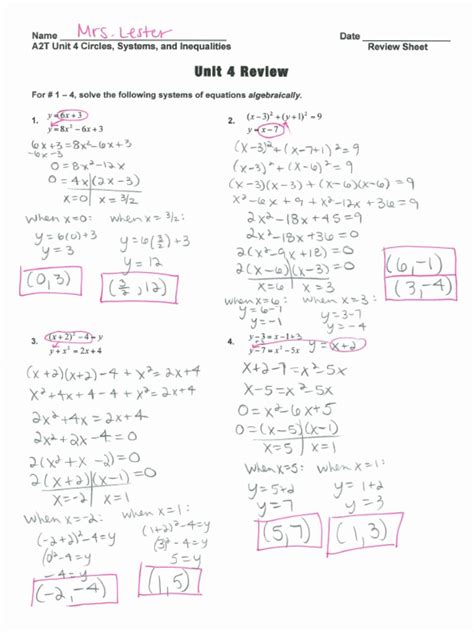 Name Mrs. Lester Date
A2T Unit 4 Circles, Systems, and Inequalities Review Sheet
Unit 4 Review
For # 1 – 4, solve the following systems of equations algebraically.
1. y = 6x + 3
y = 8x² – 6x + 3
6x+3 = 8x²-6x+3
-6x-3
0 = 8x²-12x
0 = 4x(2x-3)
x=0 | x=3/2
when x=0: when x=3/2:
y = 6(0)+3
y = 3
y = 6(3/2)+3
y = 12
(0,3) (3/2, 12)
2. (x – 3)² + (y + 1)² = 9
y = x – 7
(x-3)² + (x-7+1)² = 9
(x-3)² + (x-6)² = 9
(x-3)(x-3) + (x-6)(x-6) = 9
x²-6x+9 + x²-12x+36 = 9
2x²-18x+45 = 9
2x²-18x+36 = 0
2(x²-9x+18) = 0
2(x-6)(x-3) = 0
x=6 | x=3
when x=6: when x=3:
y = 6-7
y = -1
y = 3-7
y = -4
(6,-1)
(3,-4)
3. (x + 2)² – 4 = y
y + x² = 2x + 4
(x+2)(x+2)-4 + x² = 2x+4
x²+4x+4-4+x² = 2x+4
2x²+4x = 2x+4
2x²+2x-4 = 0
2(x²+x-2) = 0
2(x+2)(x-1) = 0
x=-2 | x=1
when x=-2: when x=1:
(-2+2)²-4 = y
(0)²-4 = y
-4 = y
(1+2)²-4 = y
(3)²-4 = y
5 = y
(-2,-4) (1,5)
4. y – 3 = x – 1 + 3 y = x+2
y – 7 = x² – 5x
x+2-7 = x²-5x
x-5 = x²-5x
0 = x²-6x+5
0 = (x-5)(x-1)
x=5 | x=1
when x=5: when x=1:
y = 5+2
y = 7
y = 1+2
y = 3
(5,7) (1,3)